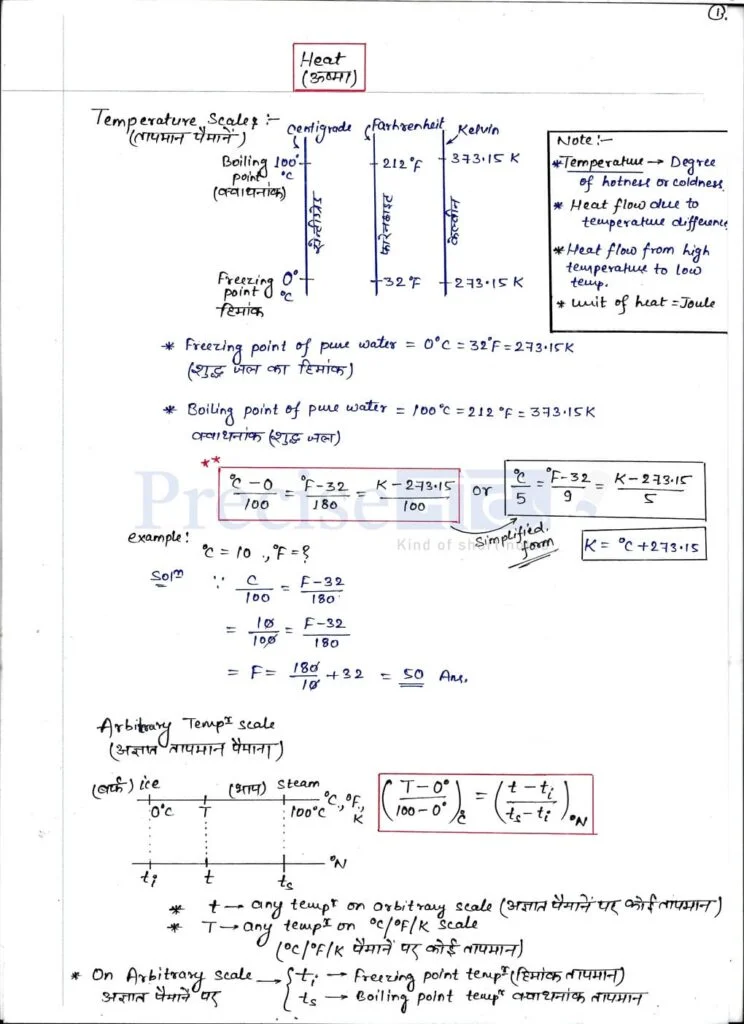 ①
Heat
(ऊष्मा)
Temperature Scales :-
(तापमान पैमानें)
Centigrade
Farhrenheit
Kelvin
Boiling 100°
point °C
(क्वाथनांक)
212°F
373.15 K
सेन्टीग्रेड
फारेनहाइट
केल्वीन
Freezing 0°
point °C
हिमांक
32°F
273.15K
Note :-
* Temperature → Degree
of hotness or coldness
* Heat flow due to
temperature difference
* Heat flow from high
temperature to low
temp.
* unit of heat = Joule
* Freezing point of pure water = 0°C = 32°F = 273.15K
(शुद्ध जल का हिमांक)
* Boiling point of pure water = 100°C = 212°F = 373.15K
क्वाथनांक (शुद्ध जल)
**
°C-0/100 = °F-32/180 = K-273.15/100 or °C/5 = °F-32/9 = K-273.15/5
Precise
Kind of
Simplified form
K = °C + 273.15
example:
°C = 10 ., °F = ?
Solⁿ ∵ C/100 = F-32/180
= 10/100 = F-32/180
= F = 180/10 + 32 = 50 Ans.
Arbitrary Tempʳ scale
(अज्ञात तापमान पैमाना)
(बर्फ) ice (भाप) Steam
0°C T 100°C °C, °F, K
(T-0°/100-0°)°C = (t-ti/ts-ti)°N
°N
ti t ts
* t → any tempʳ on arbitrary scale (अज्ञात पैमानें पर कोई तापमान)
* T → any tempʳ on °C/°F/K scale
(°C/°F/K पैमानें पर कोई तापमान)
* On Arbitrary scale → { ti → Freezing point tempʳ (हिमांक तापमान)
अज्ञात पैमानें पर { ts → Boiling point tempʳ क्वाथनांक तापमान